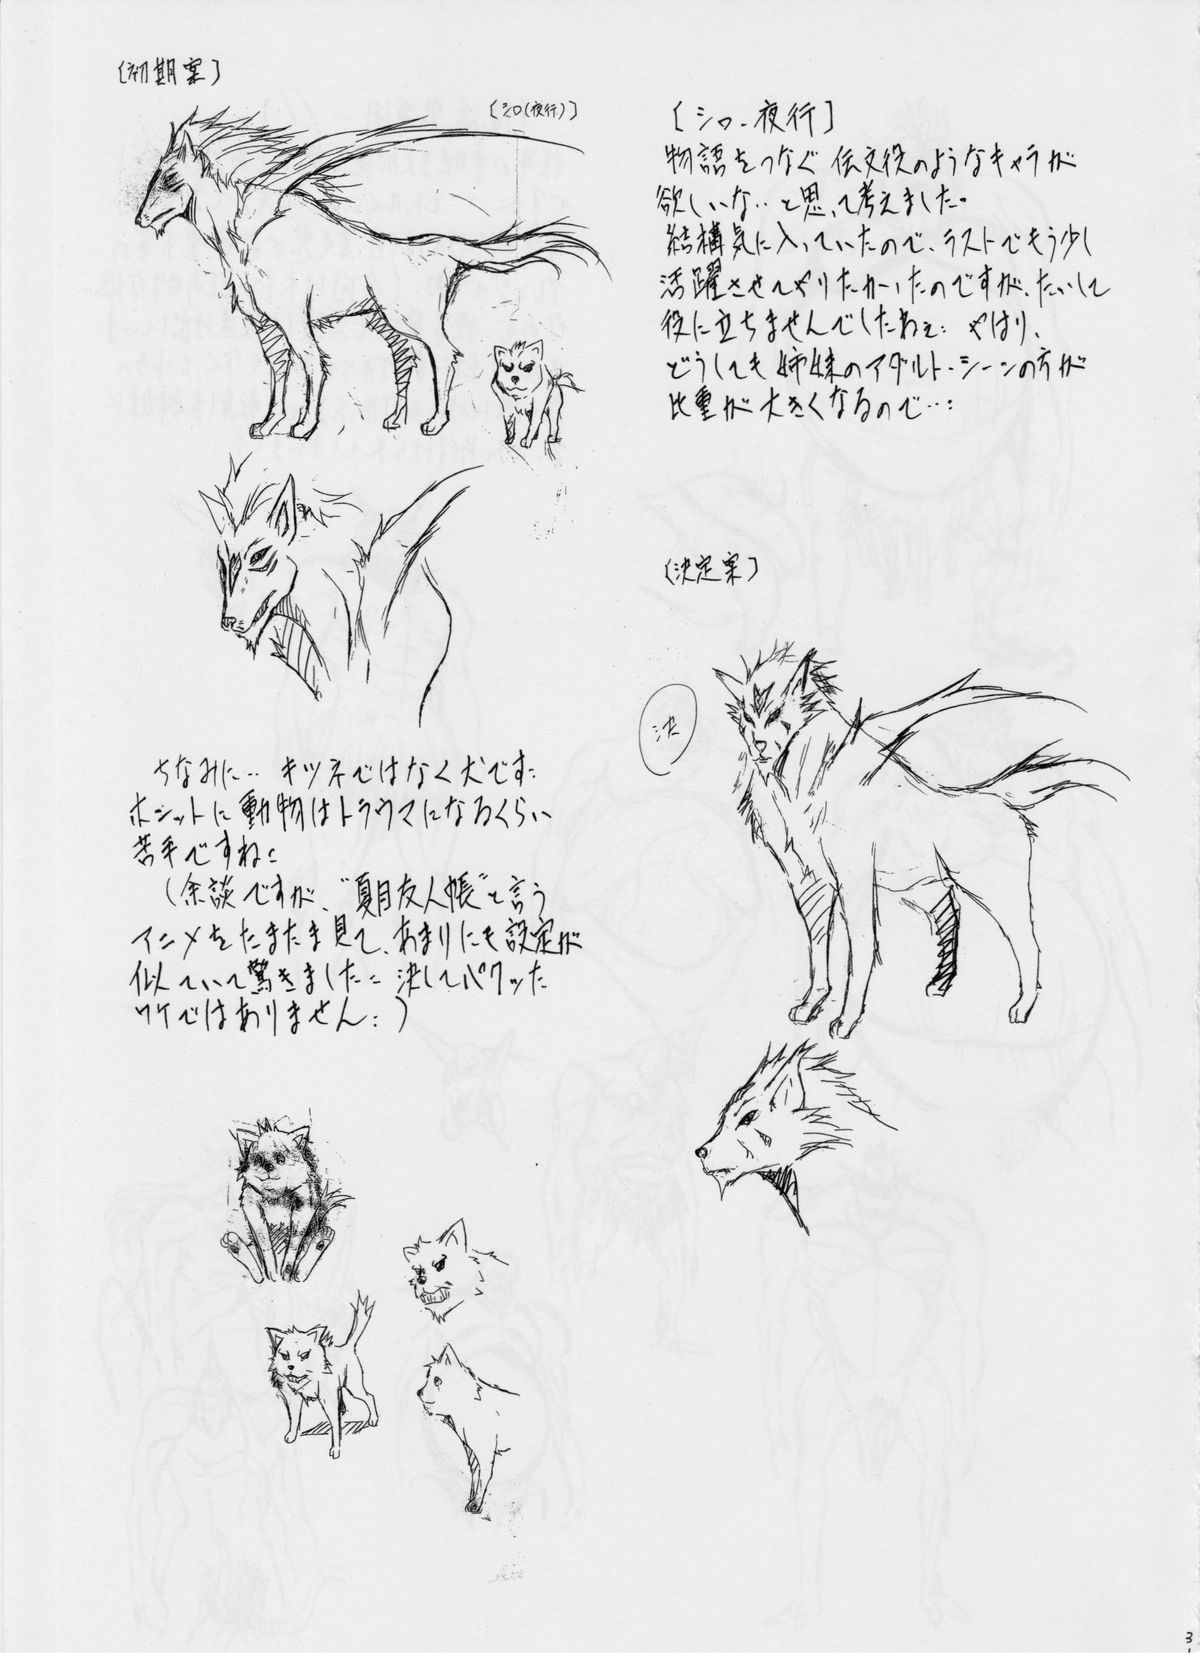 〔初期案〕
〔シロ(夜行)〕
〔シロ-夜行〕
物語をつなぐ伝文役のようなキャラが
欲しいな‥と思って考えました。
結構気に入っていたので、ラストでもう少し
活躍させてやりたかったのですが、たいして
役に立ちませんでしたねぇ: やはり、
どうしても姉妹のアダルト・シーンの方が
比重が大きくなるので…:
〔決定案〕
決
ちなみに‥キツネではなく犬です:
ホントに動物はトラウマになるくらい
苦手ですね:
(余談ですが、“夏目友人帳”と言う
アニメをたまたま見て、あまりにも設定が
似ていて驚きました: 決してパクッた
ワケではありません:)
3